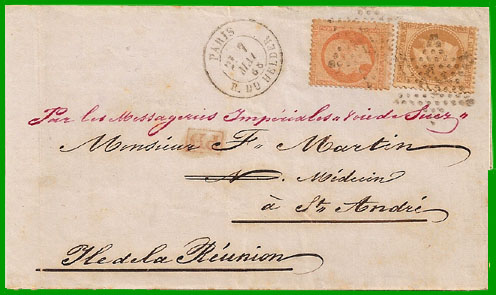 PARIS
2E 7 MAI 68
R. DU HELDER
Par les Messageries Impériales "Voie de Suez"
PD
Monsieur F. Martin
N. Médecin
à St. André
Ile de la Réunion